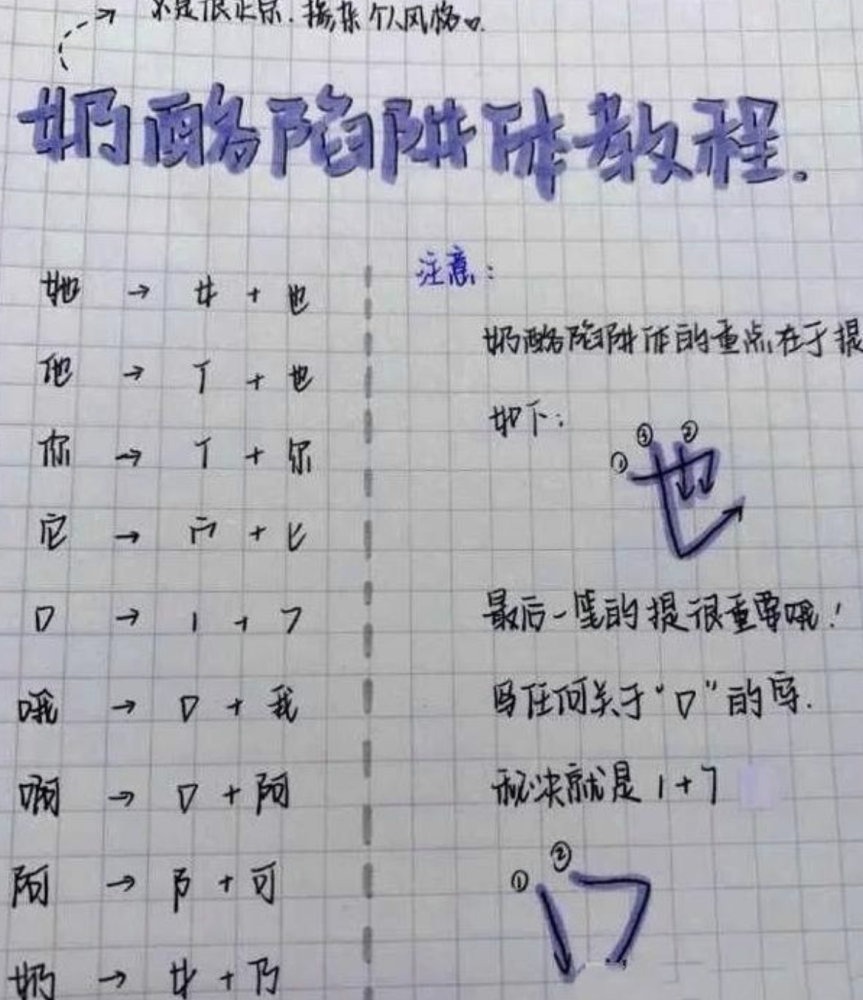 不是很正宗.掺杂个人风格
奶酪陷阱体教程。
她 → 女 + 也
他 → 亻 + 也
你 → 亻 + 尔
它 → 宀 + 匕
口 → 1 + 7
哦 → 口 + 我
啊 → 口 + 阿
阿 → 阝 + 可
奶 → 女 + 乃
注意:
奶酪陷阱体的重点在于提
如下:
① ③ ②
也
最后一笔的提很重要哦!
写任何关于“口”的字.
秘诀就是 1+7
① ②
口